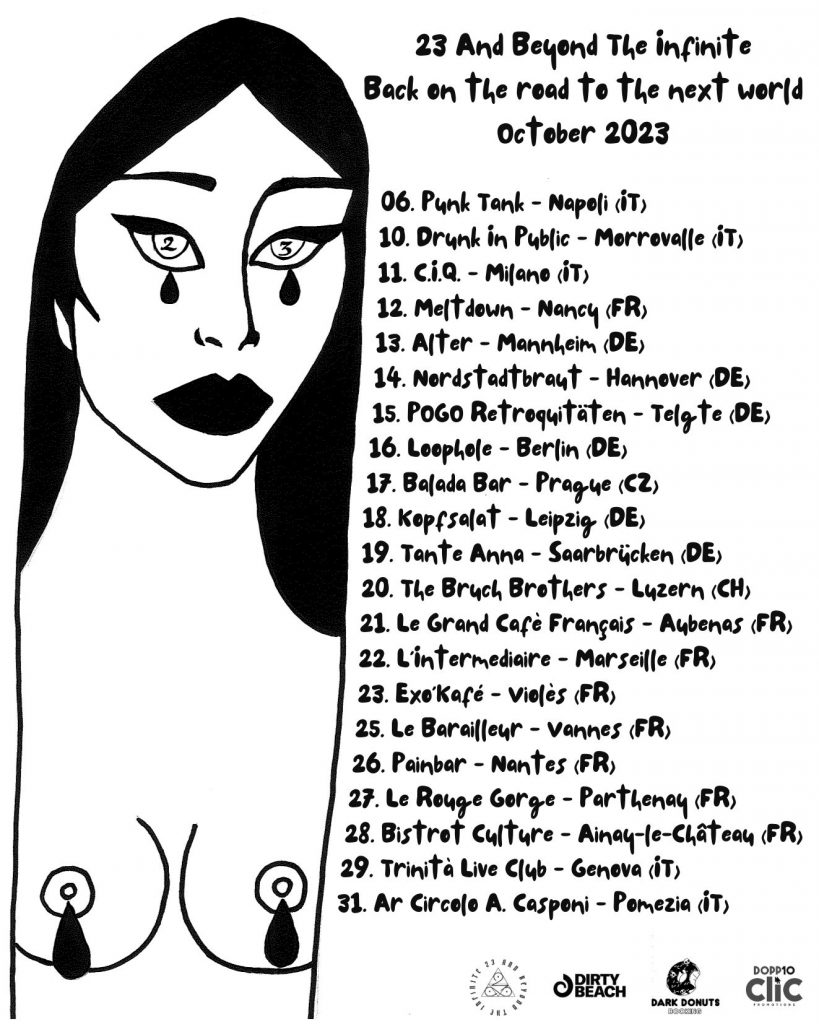 23 And Beyond The infinite
Back on the road to the next world
October 2023
06. Punk Tank - Napoli (iT)
10. Drunk in Public - Morrovalle (iT)
11. C.i.Q. - Milano (iT)
12. Meltdown - Nancy (FR)
13. Alter - Mannheim (DE)
14. Nordstadtbraut - Hannover (DE)
15. POGO Retroquitäten - Telgte (DE)
16. Loophole - Berlin (DE)
17. Balada Bar - Prague (CZ)
18. Kopfsalat - Leipzig (DE)
19. Tante Anna - Saarbrücken (DE)
20. The Bruch Brothers - Luzern (CH)
21. Le Grand Cafè Français - Aubenas (FR)
22. L'intermediaire - Marseille (FR)
23. Exo'Kafé - Violès (FR)
25. Le Barailleur - Vannes (FR)
26. Painbar - Nantes (FR)
27. Le Rouge Gorge - Parthenay (FR)
28. Bistrot Culture - Ainay-le-Château (FR)
29. Trinità Live Club - Genova (iT)
31. Ar Circolo A. Casponi - Pomezia (iT)
2 3
23 AND BEYOND THE INFINITE
DIRTY
BEACH
DARK DONUTS
BOOKING
DOPP10
CLiC
PROMOTIONS